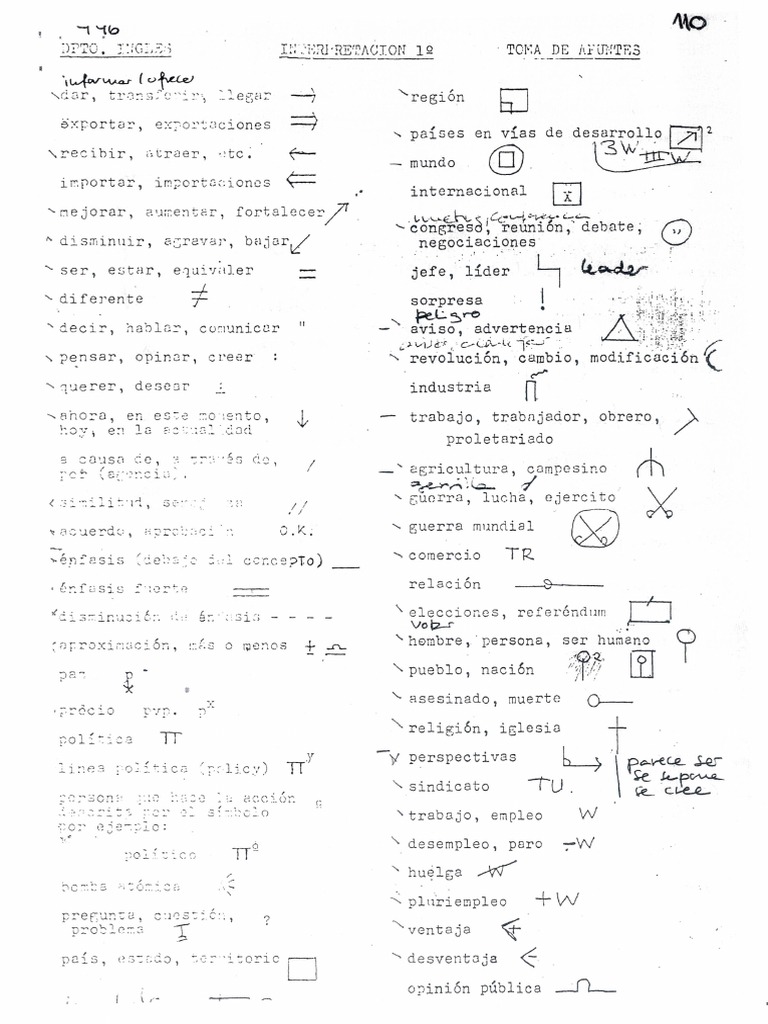 446
110
DPTO. INGLES INTERPRETACION 1º TOMA DE APUNTES
informar / ofrece
dar, transferir, llegar →
exportar, exportaciones ⇒
recibir, atraer, etc. ←
importar, importaciones ⇐
mejorar, aumentar, fortalecer ↗
disminuir, agravar, bajar ↙
ser, estar, equivaler =
diferente ≠
decir, hablar, comunicar "
pensar, opinar, creer :
querer, desear
ahora, en este momento, ↓
hoy, en la actualidad
a causa de, a través de, /
por (agencia).
similitud, //
acuerdo, aprobación O.K.
énfasis (debajo del concepto) ___
énfasis fuerte
disminución de énfasis - - - -
aproximación, más o menos ±
paz p
précio pvp. pˣ
política π
linea política (policy) πʸ
persona que hace la acción
descrita por el símbolo
por ejemplo:
político πº
bomba atómica
pregunta, cuestión, ?
problema
país, estado, territorio
región
países en vías de desarrollo ²
3W III W
mundo
internacional
congreso, reunión, debate,
negociaciones
jefe, líder leader
sorpresa !
peligro
aviso, advertencia
revolución, cambio, modificación
industria
trabajo, trabajador, obrero,
proletariado
agricultura, campesino
guerra, lucha, ejercito
guerra mundial
comercio TR
relación
elecciones, referéndum
votar
hombre, persona, ser humano
pueblo, nación ²
asesinado, muerte
religión, iglesia
perspectivas
parece ser
se supone
se cree
sindicato TU.
trabajo, empleo W
desempleo, paro -W
huelga W
pluriempleo +W
ventaja
desventaja
opinión pública